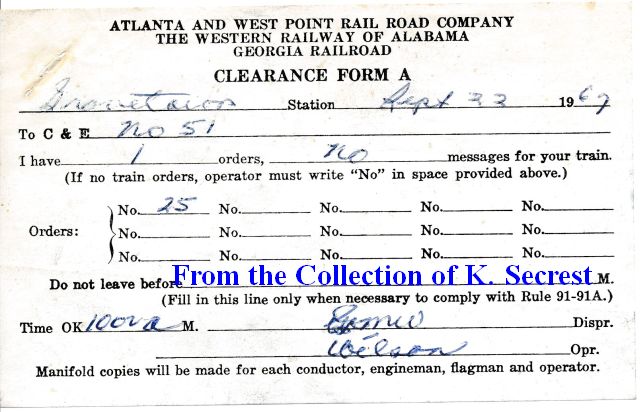 ATLANTA AND WEST POINT RAIL ROAD COMPANY
THE WESTERN RAILWAY OF ALABAMA
GEORGIA RAILROAD
CLEARANCE FORM A
Grovetown Station Sept 22 1967
To C & E No 51
I have 1 orders, No messages for your train.
(If no train orders, operator must write "No" in space provided above.)
Orders: No. 25 No. No. No. No.
No. No. No. No. No.
No. No. No. No. No.
Do not leave before M.
From the Collection of K. Secrest
(Fill in this line only when necessary to comply with Rule 91-91A.)
Time OK M. Dispr.
Wilson Opr.
Manifold copies will be made for each conductor, engineman, flagman and operator.